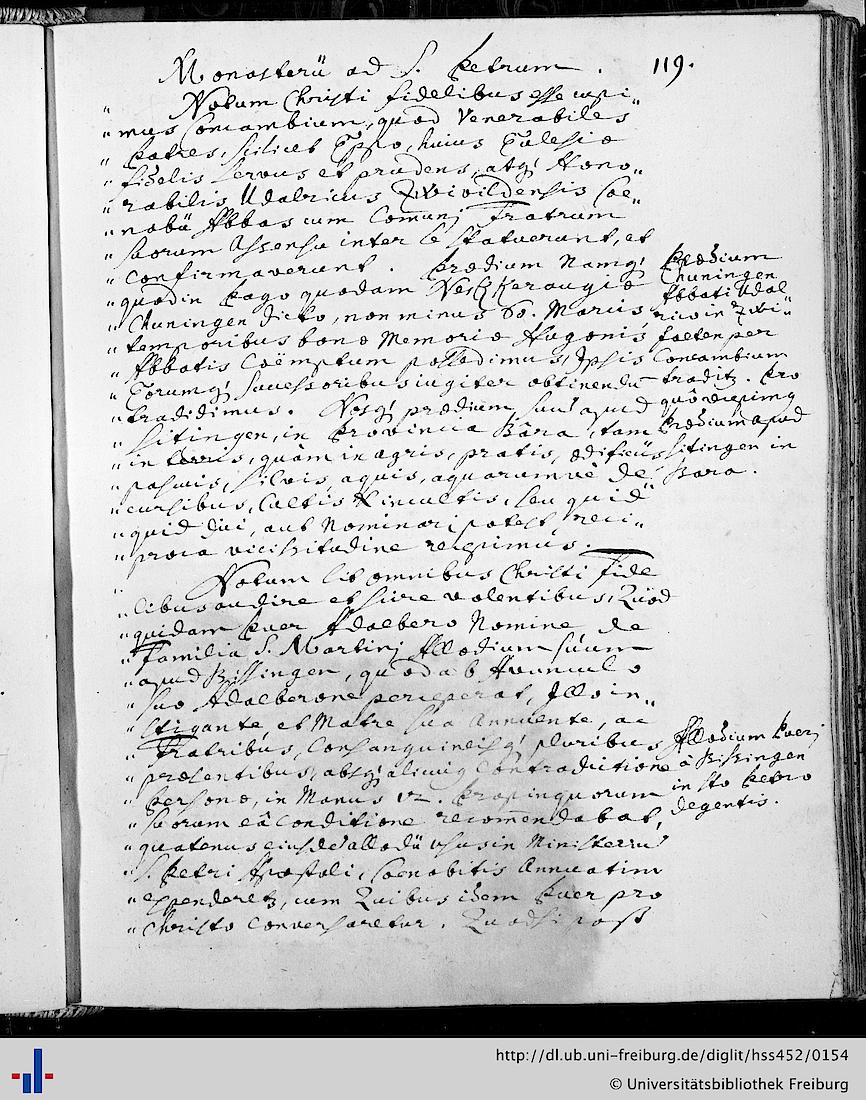 Monasterii ad S. Petrum. 119.
Notum Christi fidelibus esse cupi„
„ mus Concambium, quod Venerabiles
„ Patres, scilicet Eppo, huius Ecclesiæ
„ fidelis servus et prudens, atq; Hono„
„ rabilis Udalricus Zwivildensis Coe„
„ nobii Abbas cum Comuni Fratrum
„ suorum Assensu inter se statuerunt, et
„ confirmaverunt. Prædium Namq;
„ quod in Pago quodam Neckeraugiæ
„ Chuningen dicto, non minus 60. Marcis,
„ temporibus bonæ Memoriæ Hugonis
„ Abbatis Coëmptum possedimus, Ipsis
„ Eorumq; successoribus iugiter obtinendū
„ tradidimus. Nosq; prædium suū apud
„ Sitingen, in Provincia Bâra, tam
„ in terris, quàm in agris, pratis, ædificiis
„ pascuis, silvis, aquis, aquarumve de„
„ cursibus, Cultis & incultis, seu quid„
„ quid dici, aut Nominari potest, reci„
„ proca vicissitudine recepimus.
Prædium
Chuningen
Abbati Udal„
rico in Zwi„
falten per
Concambium
traditz. Pro
quô recepimq
Prædium apud
Sitingen in
Bara.
„ Notum sit omnibus Christi Fide
„ libus audire et scire volentibus, Quòd
„ quidam Puer Adalbero Nomine de
„ Familia S. Martini Allodium suum
„ apud Bissingen, quod ab Avunculo
„ suo Adalberone perceperat, Illo in„
„ stigante, et Matre sua Annuente, ac
„ Fratribus, Consanguineisq; pluribus
„ præsentibus, absq; alicuiq Contradictione
„ Personæ, in Manus Propinquorum
„ suorum eâ conditione recomendabat,
„ quatenus eiusdē allodii usus in Ministeriū
„ S. Petri Apostoli, Coenobitis Annuatim
„ expenderetz, cum Quibus idem Puer pro
„ Christo Conversaretur. Quodsi post
Allodium Pueri
â Bissingen
in Sto Petro
degentis.
http://dl.ub.uni-freiburg.de/diglit/hss452/0154
© Universitätsbibliothek Freiburg